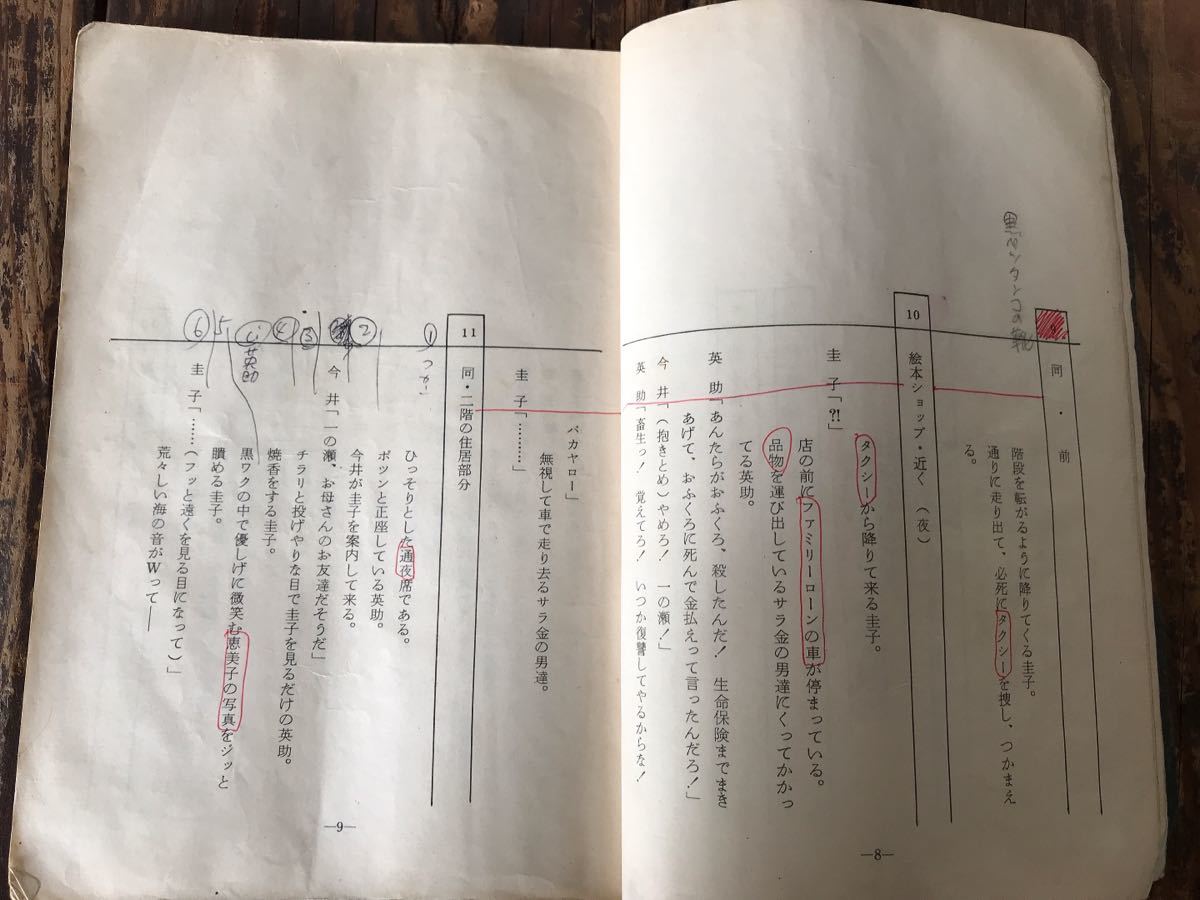 黒ペシャンコの靴
9 同・前
階段を転がるように降りてくる圭子。
通りに走り出て、必死にタクシーを捜し、つかまえ
る。
10 絵本ショップ・近く（夜）
タクシーから降りて来る圭子。
圭子「?!」
店の前にファミリーローンの車が停まっている。
品物を運び出しているサラ金の男達にくってかかっ
てる英助。
英助「あんたらがおふくろ、殺したんだ！　生命保険までまき
あげて、おふくろに死んで金払えって言ったんだろ！」
今井「（抱きとめ）やめろ！　一の瀬！」
英助「畜生っ！　覚えてろ！　いつか復讐してやるからな！
—8—
バカヤロー」
無視して車で走り去るサラ金の男達。
圭子「………」
11 同・二階の住居部分
① つかー
ひっそりとした通夜席である。
ポツンと正座している英助。
② 今井が圭子を案内して来る。
今井「一の瀬、お母さんのお友達だそうだ」
③ チラリと投げやりな目で圭子を見るだけの英助。
④ 焼香をする圭子。
英助
黒ワクの中で優しげに微笑む恵美子の写真をジッと
5 瞶める圭子。
⑥ 圭子「……（フッと遠くを見る目になって）」
荒々しい海の音がWって——
—9—